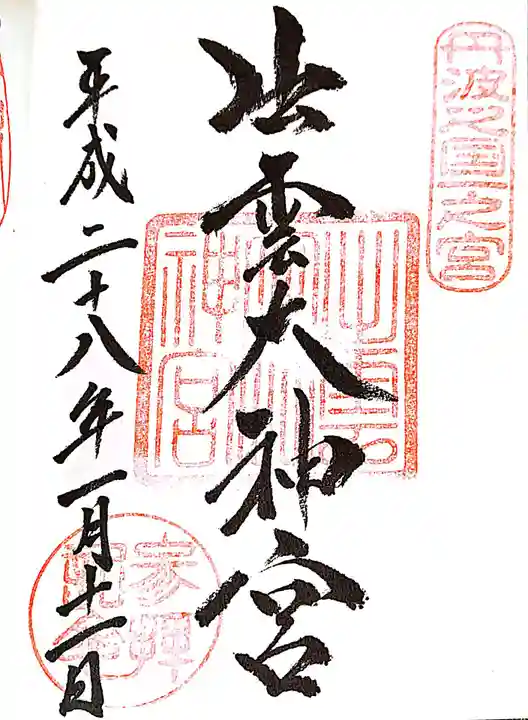 丹波之国一之宮
出雲大神宮
平成二十八年一月十一日
参拝記念